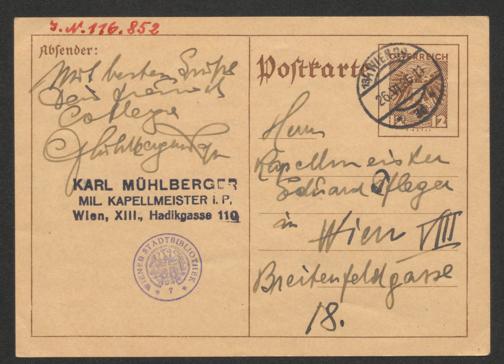 J.N. 116.852
Absender:
Mit besten Grüße
Dein
College
KARL MÜHLBERGER
MIL. KAPELLMEISTER i. P.
Wien, XIII., Hadikgasse 110
WIENER STADTBIBLIOTHEK
7
Postkarte
ÖSTERREICH
WIEN
12 12
Herrn
Kapellmeister
Eduard Pfleger
in
Wien VIII
Breitenfeldgasse
18.